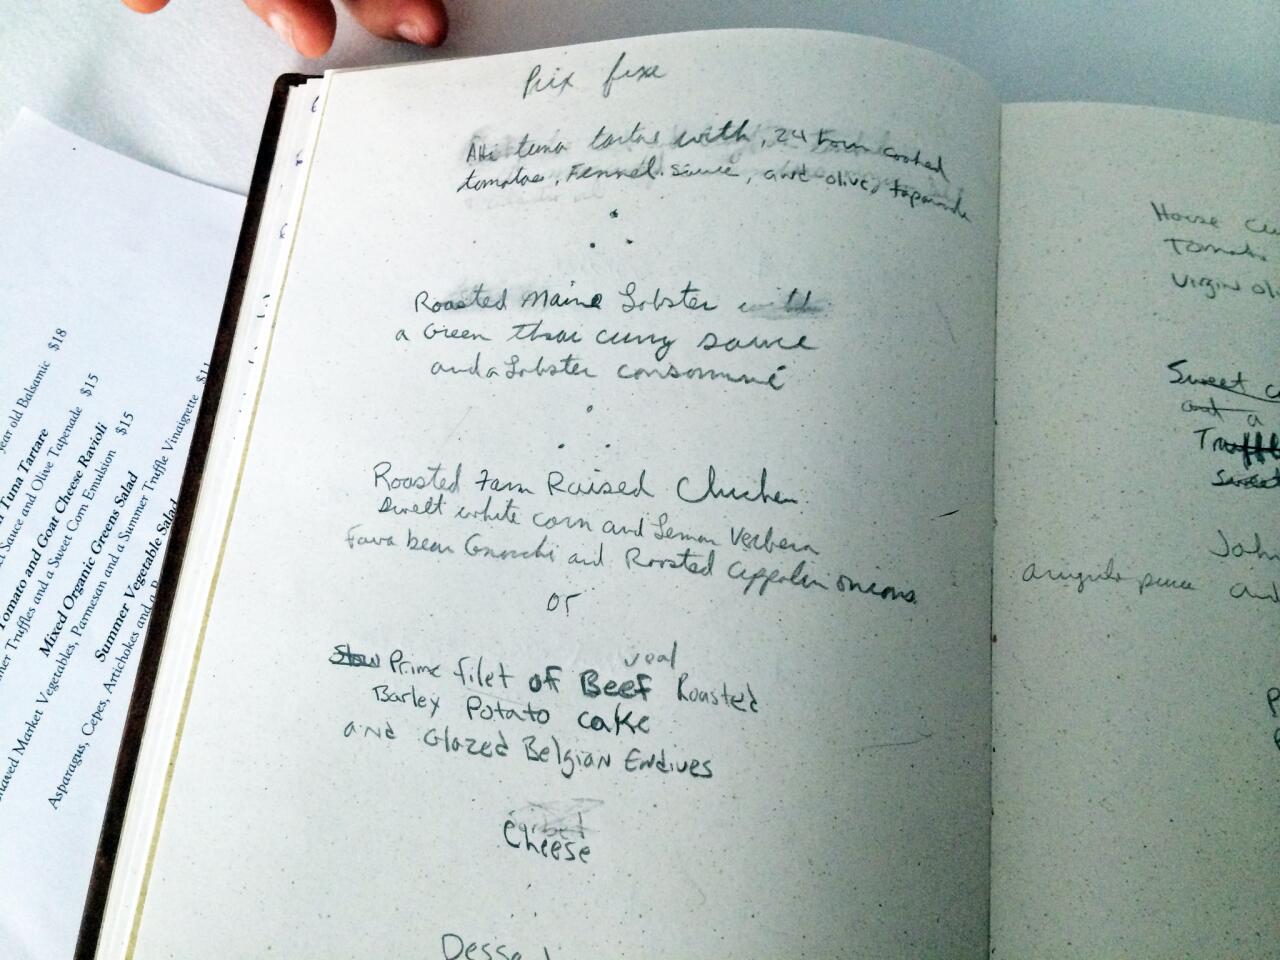 Prix fixe
Ahi tuna tartar with, 24 hour cooked
tomatoe, Fennel sauce, and olive, tapanade
Roasted Maine Lobster with
a Green Thai curry sauce
and a Lobster consommé
Roasted Farm Raised Chicken
Sweet white corn and Lemon Verbena
Fava bean Gnocchi and Roasted cippolin onions
or
veal
Prime filet of Beef Roasted
Barley Potato cake
and Glazed Belgian Endives
Cheese
year old Balsamic $18
Tuna Tartare
Sauce and Olive Tapenade $15
Tomato and Goat Cheese Ravioli
Truffles and a Sweet Corn Emulsion $15
Mixed Organic Greens Salad
Shaved Market Vegetables, Parmesan and a Summer Truffle Vinaigrette
Summer Vegetable Salad
Asparagus, Cepes, Artichokes and a
House
Tomato
Virgin
Sweet
and a
Sweet
John
and